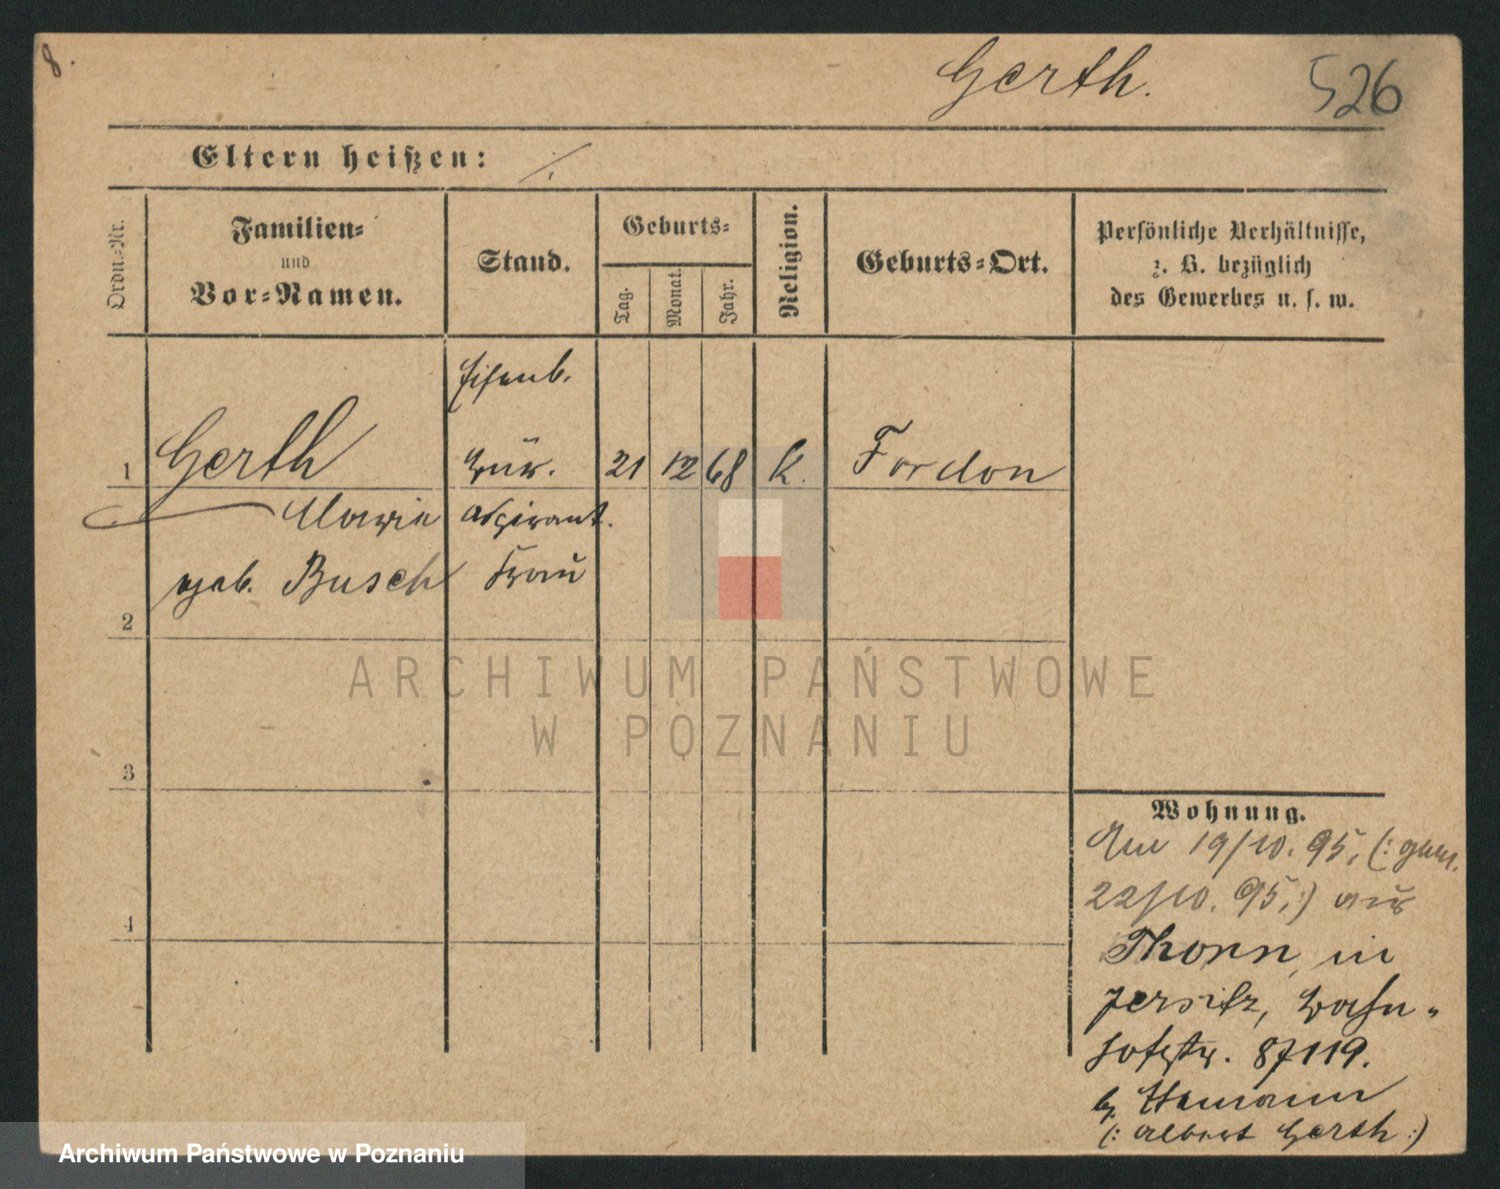 8.
Gerth.
526
Eltern heißen: ./.
Ordn.-Nr.
Familien-
und
Vor-Namen.
Stand.
Geburts-
Tag.
Monat.
Jahr.
Religion.
Geburts-Ort.
Persönliche Verhältnisse,
z. B. bezüglich
des Gewerbes u. s. w.
Eisenb.
1 Gerth Bür. 21 12 68 k. Fordon
Maria aspirant.
geb. Busch Frau
2
3
4
Wohnung.
Am 19/10. 95, (: gem.
22/10. 95, :) aus
Thorn, in
Jersitz, Bahn-
hofstr. 87/119.
b.
(: Albert Gerth :)
ARCHIWUM PAŃSTWOWE
W POZNANIU
Archiwum Państwowe w Poznaniu